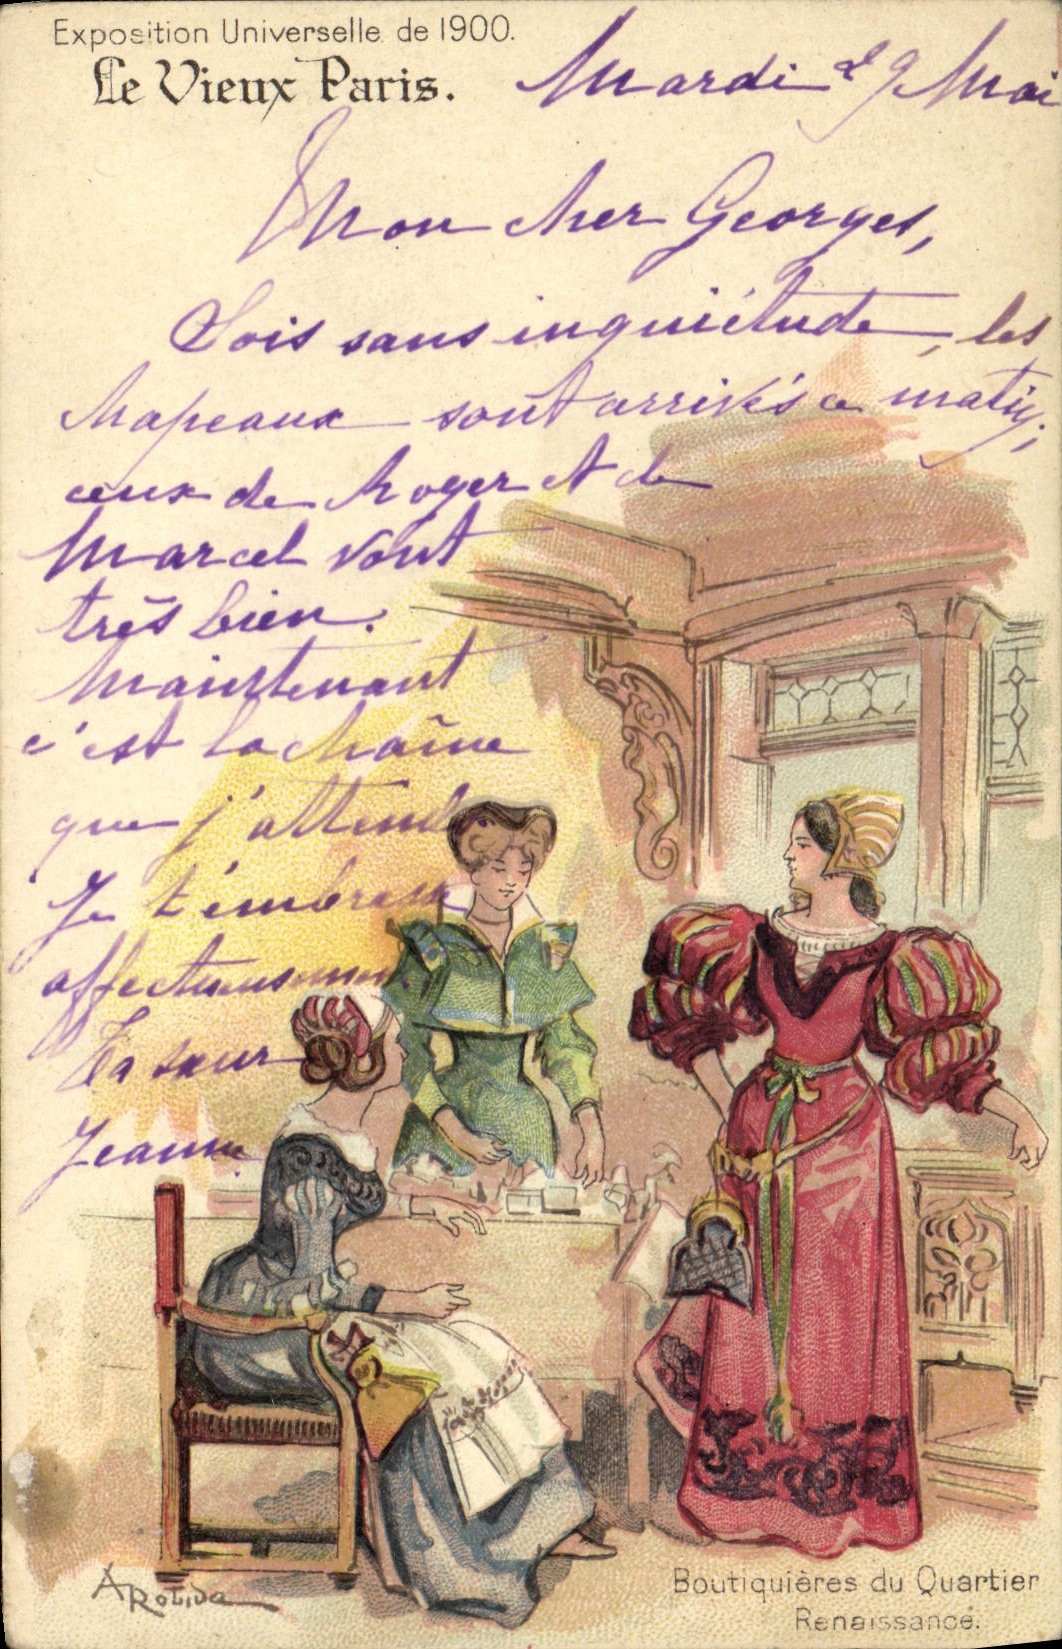 Exposition Universelle de 1900.
Le Vieux Paris.
Mardi 29 Mai
Mon cher Georges,
Sois sans inquiétude, les
chapeaux sont arrivés ce matin,
ceux de Roger et de
Marcel vont
très bien.
Maintenant
c'est la chaîne
que j'attends
Je t'embrasse
affectueusement
Ta sœur
Jeanne
A Robida
Boutiquières du Quartier
Renaissance.